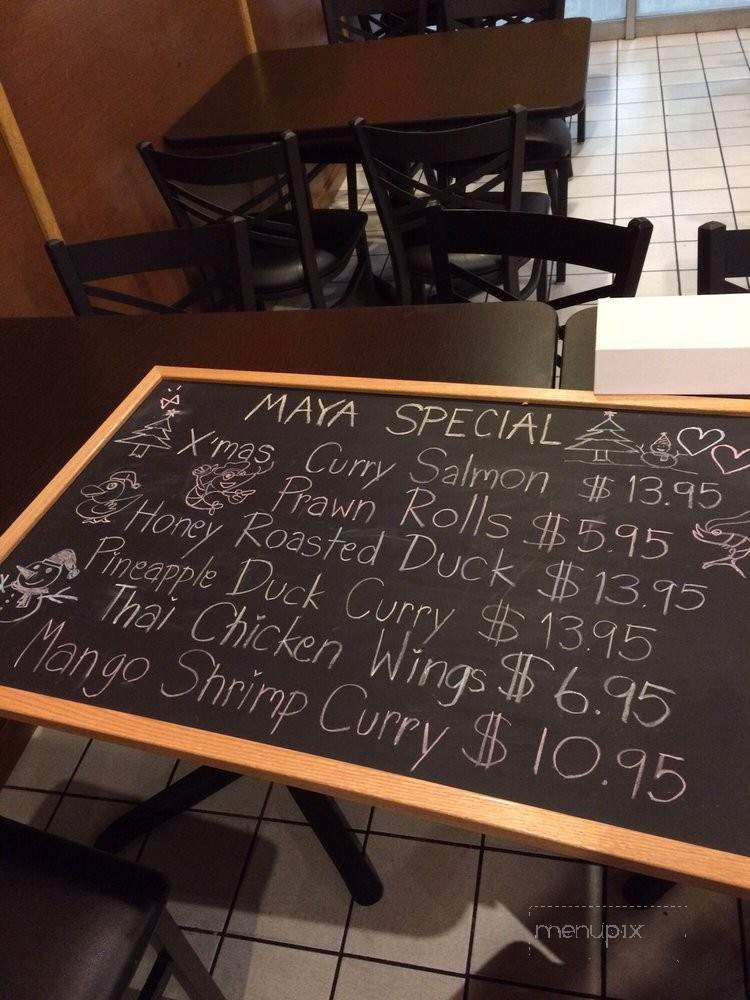 MAYA SPECIAL
X'mas Curry Salmon $13.95
Prawn Rolls $5.95
Honey Roasted Duck $13.95
Pineapple Duck Curry $13.95
Thai Chicken Wings $6.95
Mango Shrimp Curry $10.95
menupix